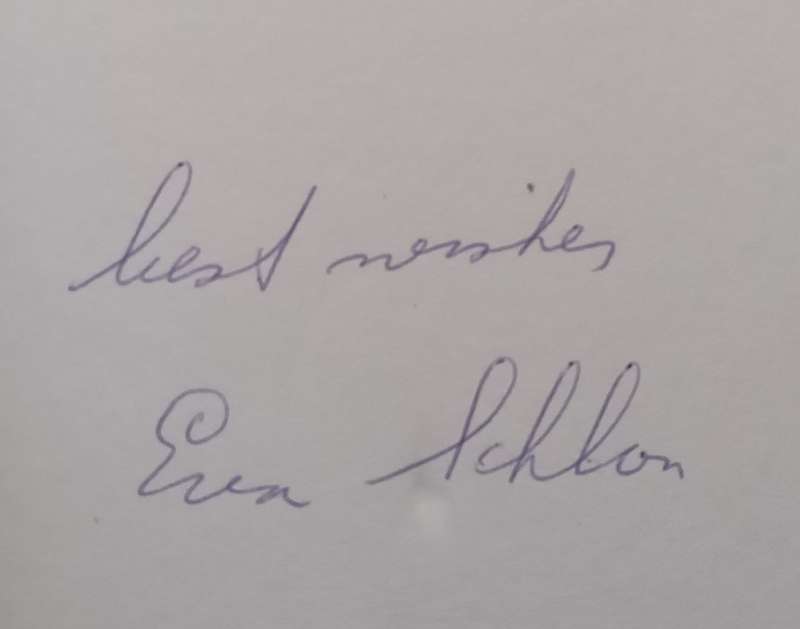 best wishes
Eva Schloss